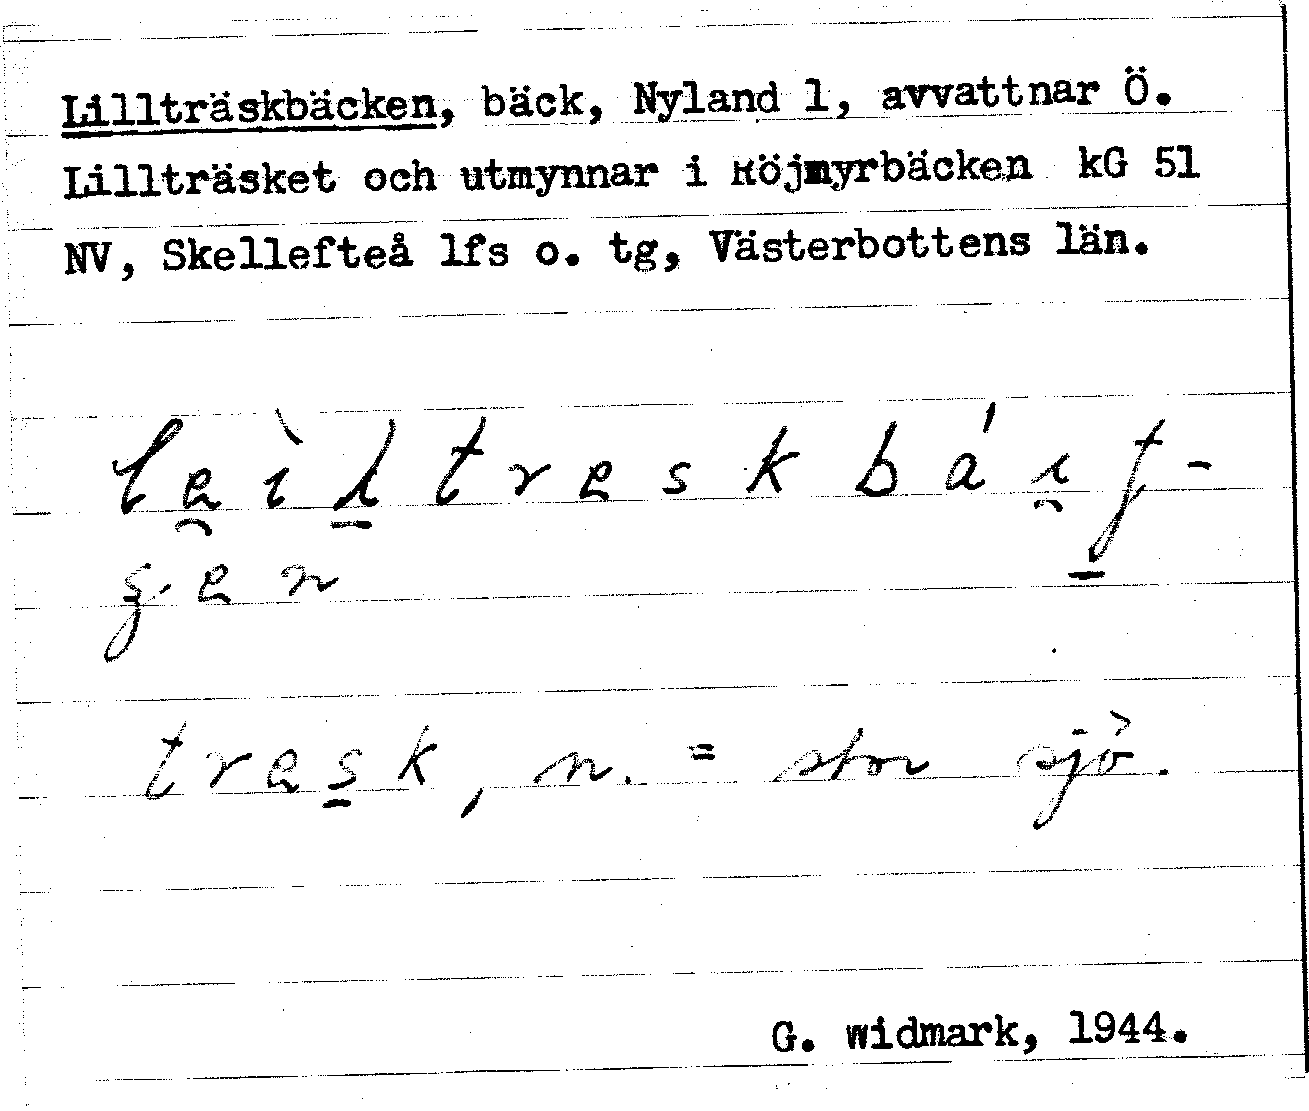 Lillträskbäcken, bäck, Nyland 1, avvattnar Ö.
Lillträsket och utmynnar i Röjmyrbäcken kG 51
NV, Skellefteå lfs o. tg, Västerbottens län.
tresk, n. = stor sjö.
G. Widmark, 1944.